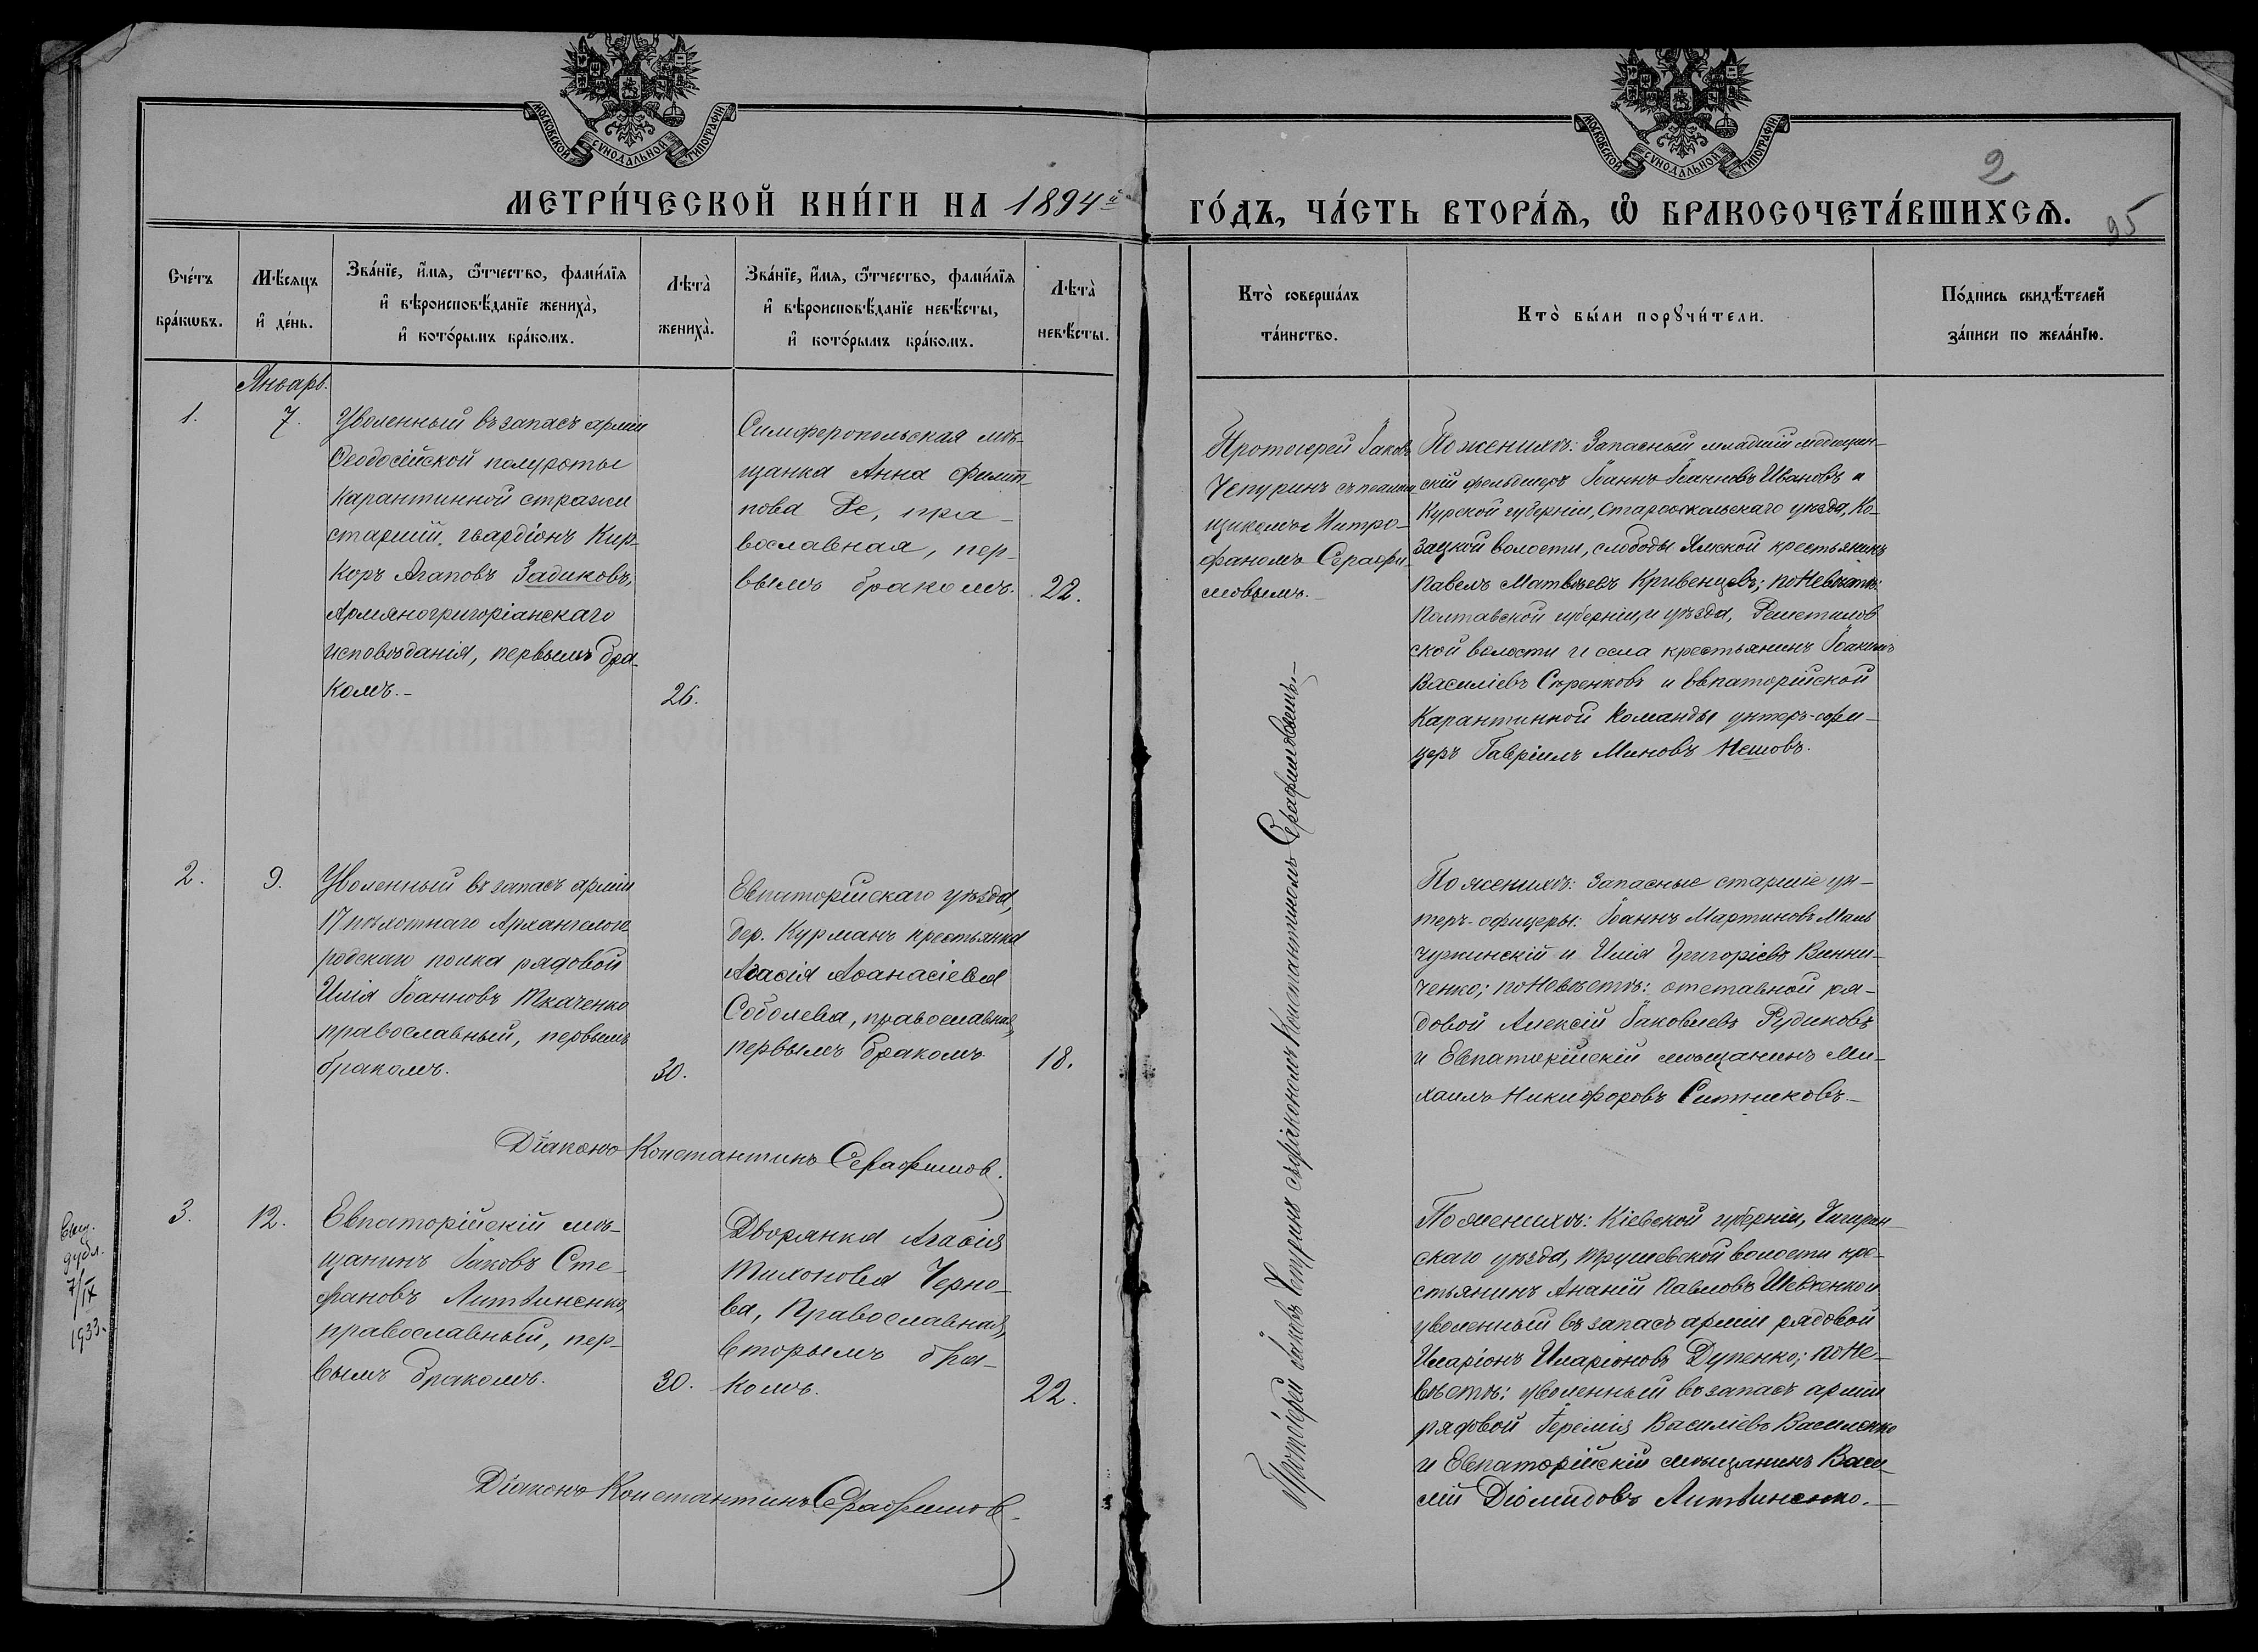 МОСКОВСКОЙ СУНОДАЛЬНОЙ ТИПОГРАФІИ
МОСКОВСКОЙ СУНОДАЛЬНОЙ ТИПОГРАФІИ
2
МЕТРИ́ЧЕСКОЙ КНИ́ГИ НА 1894й
ГО́ДЪ, ЧА́СТЬ ВТОРА́Ѧ, Ѽ БРАКОСОЧЕТА́ВШИХСѦ.
95
Сче́тъ бра́кѡвъ.
Мѣ́сяцъ и҆ де́нь.
Зва́нїе, и҆́мѧ, ѻ҆́тчество, фами́лїѧ
и҆ вѣроисповѣ́данїе жениха̀,
и҆ кото́рымъ бра́комъ.
Лѣта̀ жениха̀.
Зва́нїе, и҆́мѧ, ѻ҆́тчество, фами́лїѧ
и҆ вѣроисповѣ́данїе невѣ́сты,
и҆ кото́рымъ бра́комъ.
Лѣта̀ невѣ́сты.
Кто̀ соверша́лъ
та́инство.
Кто̀ бы́ли порꙋчи́тели.
По́дпись свидѣ́телей
за́писи по жела́нїю.
Январь.
1.
7.
Уволенный въ запасъ арміи
Ѳеодосійской полуроты
карантинной стражи
старшій гвардіонъ Кир-
коръ Агаповъ Задиковъ,
Армяногригоріанскаго
исповѣданія, первымъ бра-
комъ.-
26.
Симферопольская мѣ-
щанка Анна Филип-
пова Ре, пра-
вославная, пер-
вымъ бракомъ.
22.
Протоіерей Іаковъ
Чепуринъ съ псалом
щикомъ Митро-
фаномъ Серафи-
мовымъ.-
По женихѣ: Запасный младшій медицин-
скій фельдшеръ Іоаннъ Іоанновъ Ивановъ и
Курской губерніи, Старооскольскаго уѣзда, Ко-
зацкой волости, слободы Ямской крестьянинъ
Павелъ Матвѣевъ Кривенцовъ; по невѣстѣ:
Полтавской губерніи, и уѣзда, Решетилов
ской волости и села крестьянинъ Іоакимъ
Василіевъ Сѣренковъ и Евпаторійской
Карантинной Команды унтеръ-офи-
церъ Гавріилъ Миновъ Нешовъ.
2.
9.
Уволенный въ запасъ арміи
17 пѣхотнаго Архангелого
родскаго полка рядовой
Илія Іоанновъ Ткаченко
православный, первымъ
бракомъ.
30.
Евпаторійскаго уѣзда,
дер. Курманъ крестьянка
Агаѳія Аѳанасіева
Соболева, православная,
первымъ бракомъ
18.
По женихѣ: Запасные старшіе ун-
теръ-офицеры: Іоаннъ Мартиновъ Маль
чужинскій и Илія Григоріевъ Винни-
ченко; по невѣстѣ: отставной ря-
довой Алексій Іаковлевъ Рудиковъ
и Евпаторійскій мѣщанинъ Ми-
хаилъ Никифоровъ Ситниковъ.-
Діаконъ Константинъ Серафимов.
3.
12.
Евпаторійскій мѣ-
щанинъ Іаковъ Сте-
фановъ Литвиненко,
православный, пер-
вымъ бракомъ.
30.
Дворянка Агаѳія
Тихонова Черно-
ва, Православная,
вторымъ бра-
комъ.
22.
По женихѣ: Кіевской губерніи, Чигирин-
скаго уѣзда, волости кре-
стьянинъ Ананій Павловъ Шевченко и
уволенный въ запасъ арміи рядовой
Иларіонъ Иларіоновъ Дупенко; по не-
вѣстѣ: уволенный въ запасъ арміи
рядовой Іеремія Василіевъ Василенко
и Евпаторійскій мѣщанинъ Васи-
лій Діомидовъ Литвиненко.-
Діаконъ Константинъ Серафимов.
Протоіерей Іаковъ Чепуринъ съ діакономъ Константиномъ Серафимовымъ.-
Выд.
дубл.
7/IX
1933.